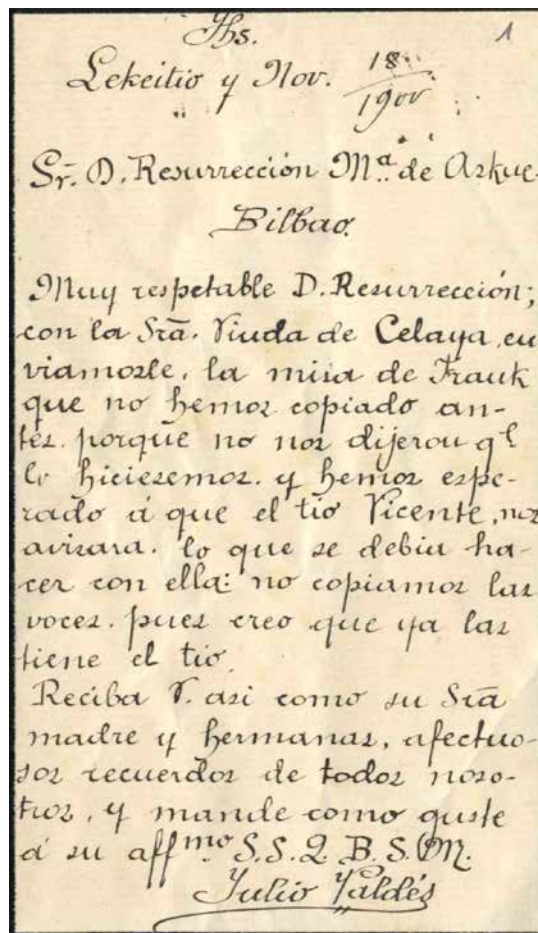 Jhs.
1
Lekeitio y Nov. 18/1900
Sr. D. Resurrección Mª. de Azkue
Bilbao.
Muy respetable D. Resurrección;
con la Srā. Viuda de Celaya, en
viamosle, la misa de Frank
que no hemos copiado an-
tes. porque no nos dijeron ql
lo hiciesemos. y hemos espe-
rado á que el tio Vicente, nos
avisara. lo que se debia ha-
cer con ella: no copiamos las
voces. pues creo que ya las
tiene el tio.
Reciba V. asi como su Srā
madre y hermanas, afectuo-
sos recuerdos de todos noso-
tros, y mande como guste
á su affmo S.S.Q.B.S.M.
Julio Valdés